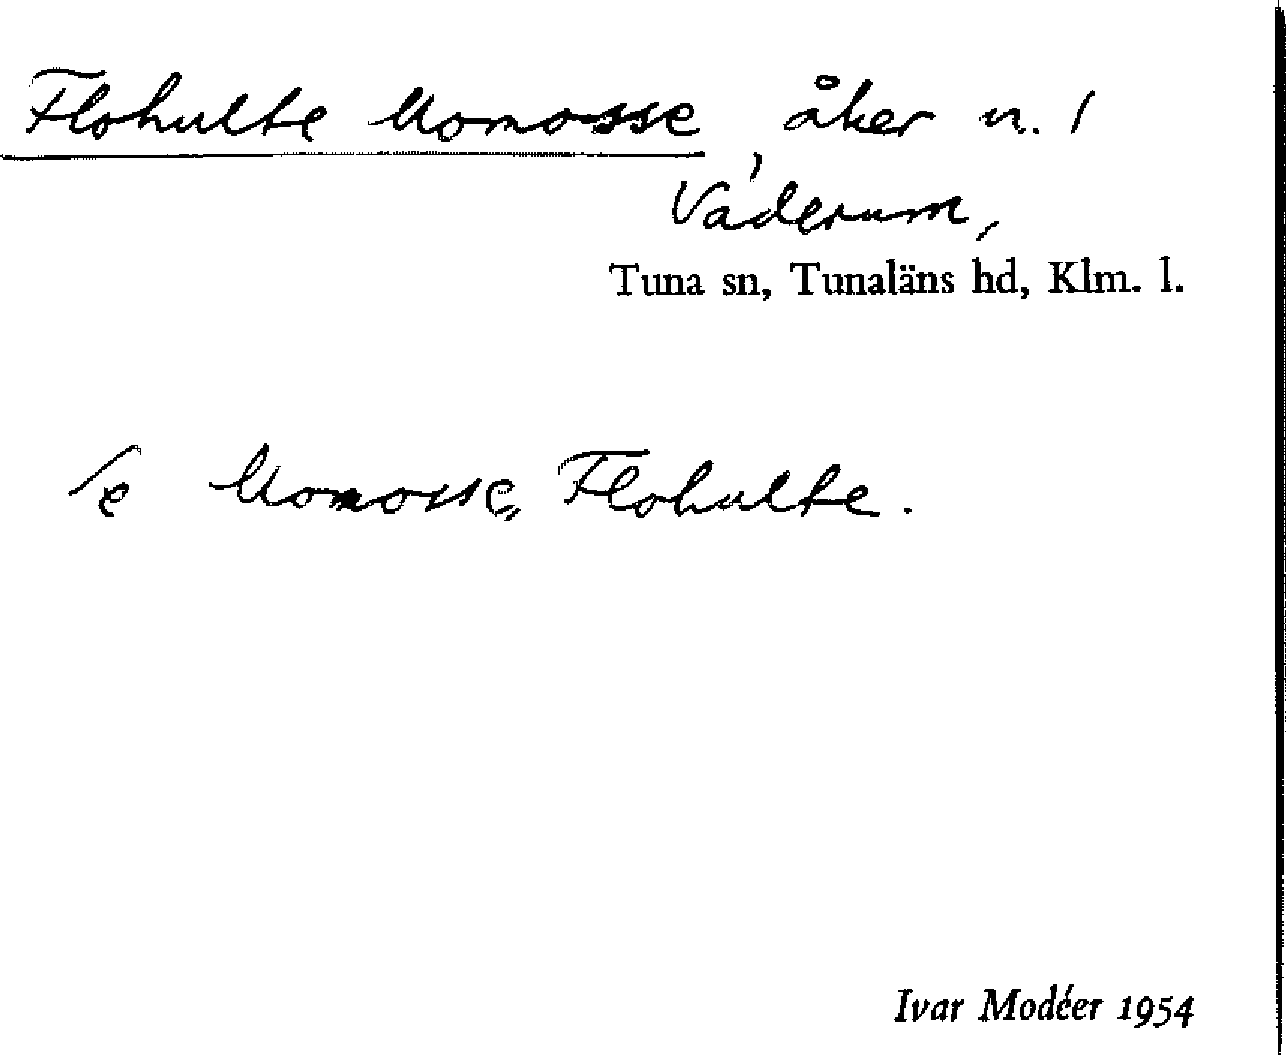 Flohulte Momosse åker n. 1
Váderum,
Tuna sn, Tunaläns hd, Klm. l.
Se Momosse, Flohulte.
Ivar Modéer 1954